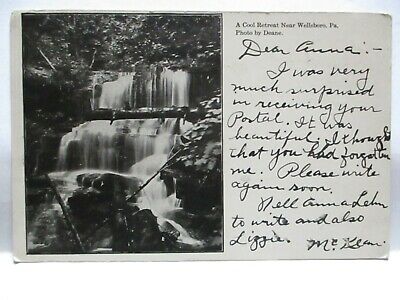 A Cool Retreat Near Wellsboro, Pa.
Photo by Deane.
Dear Anna:-
I was very
much surprised
in receiving your
Postal. It was
beautiful. I though
that you had forgotten
me. Please write
again soon.
Tell Anna Lehn
to write and also
Lizzie. Mc Lean.